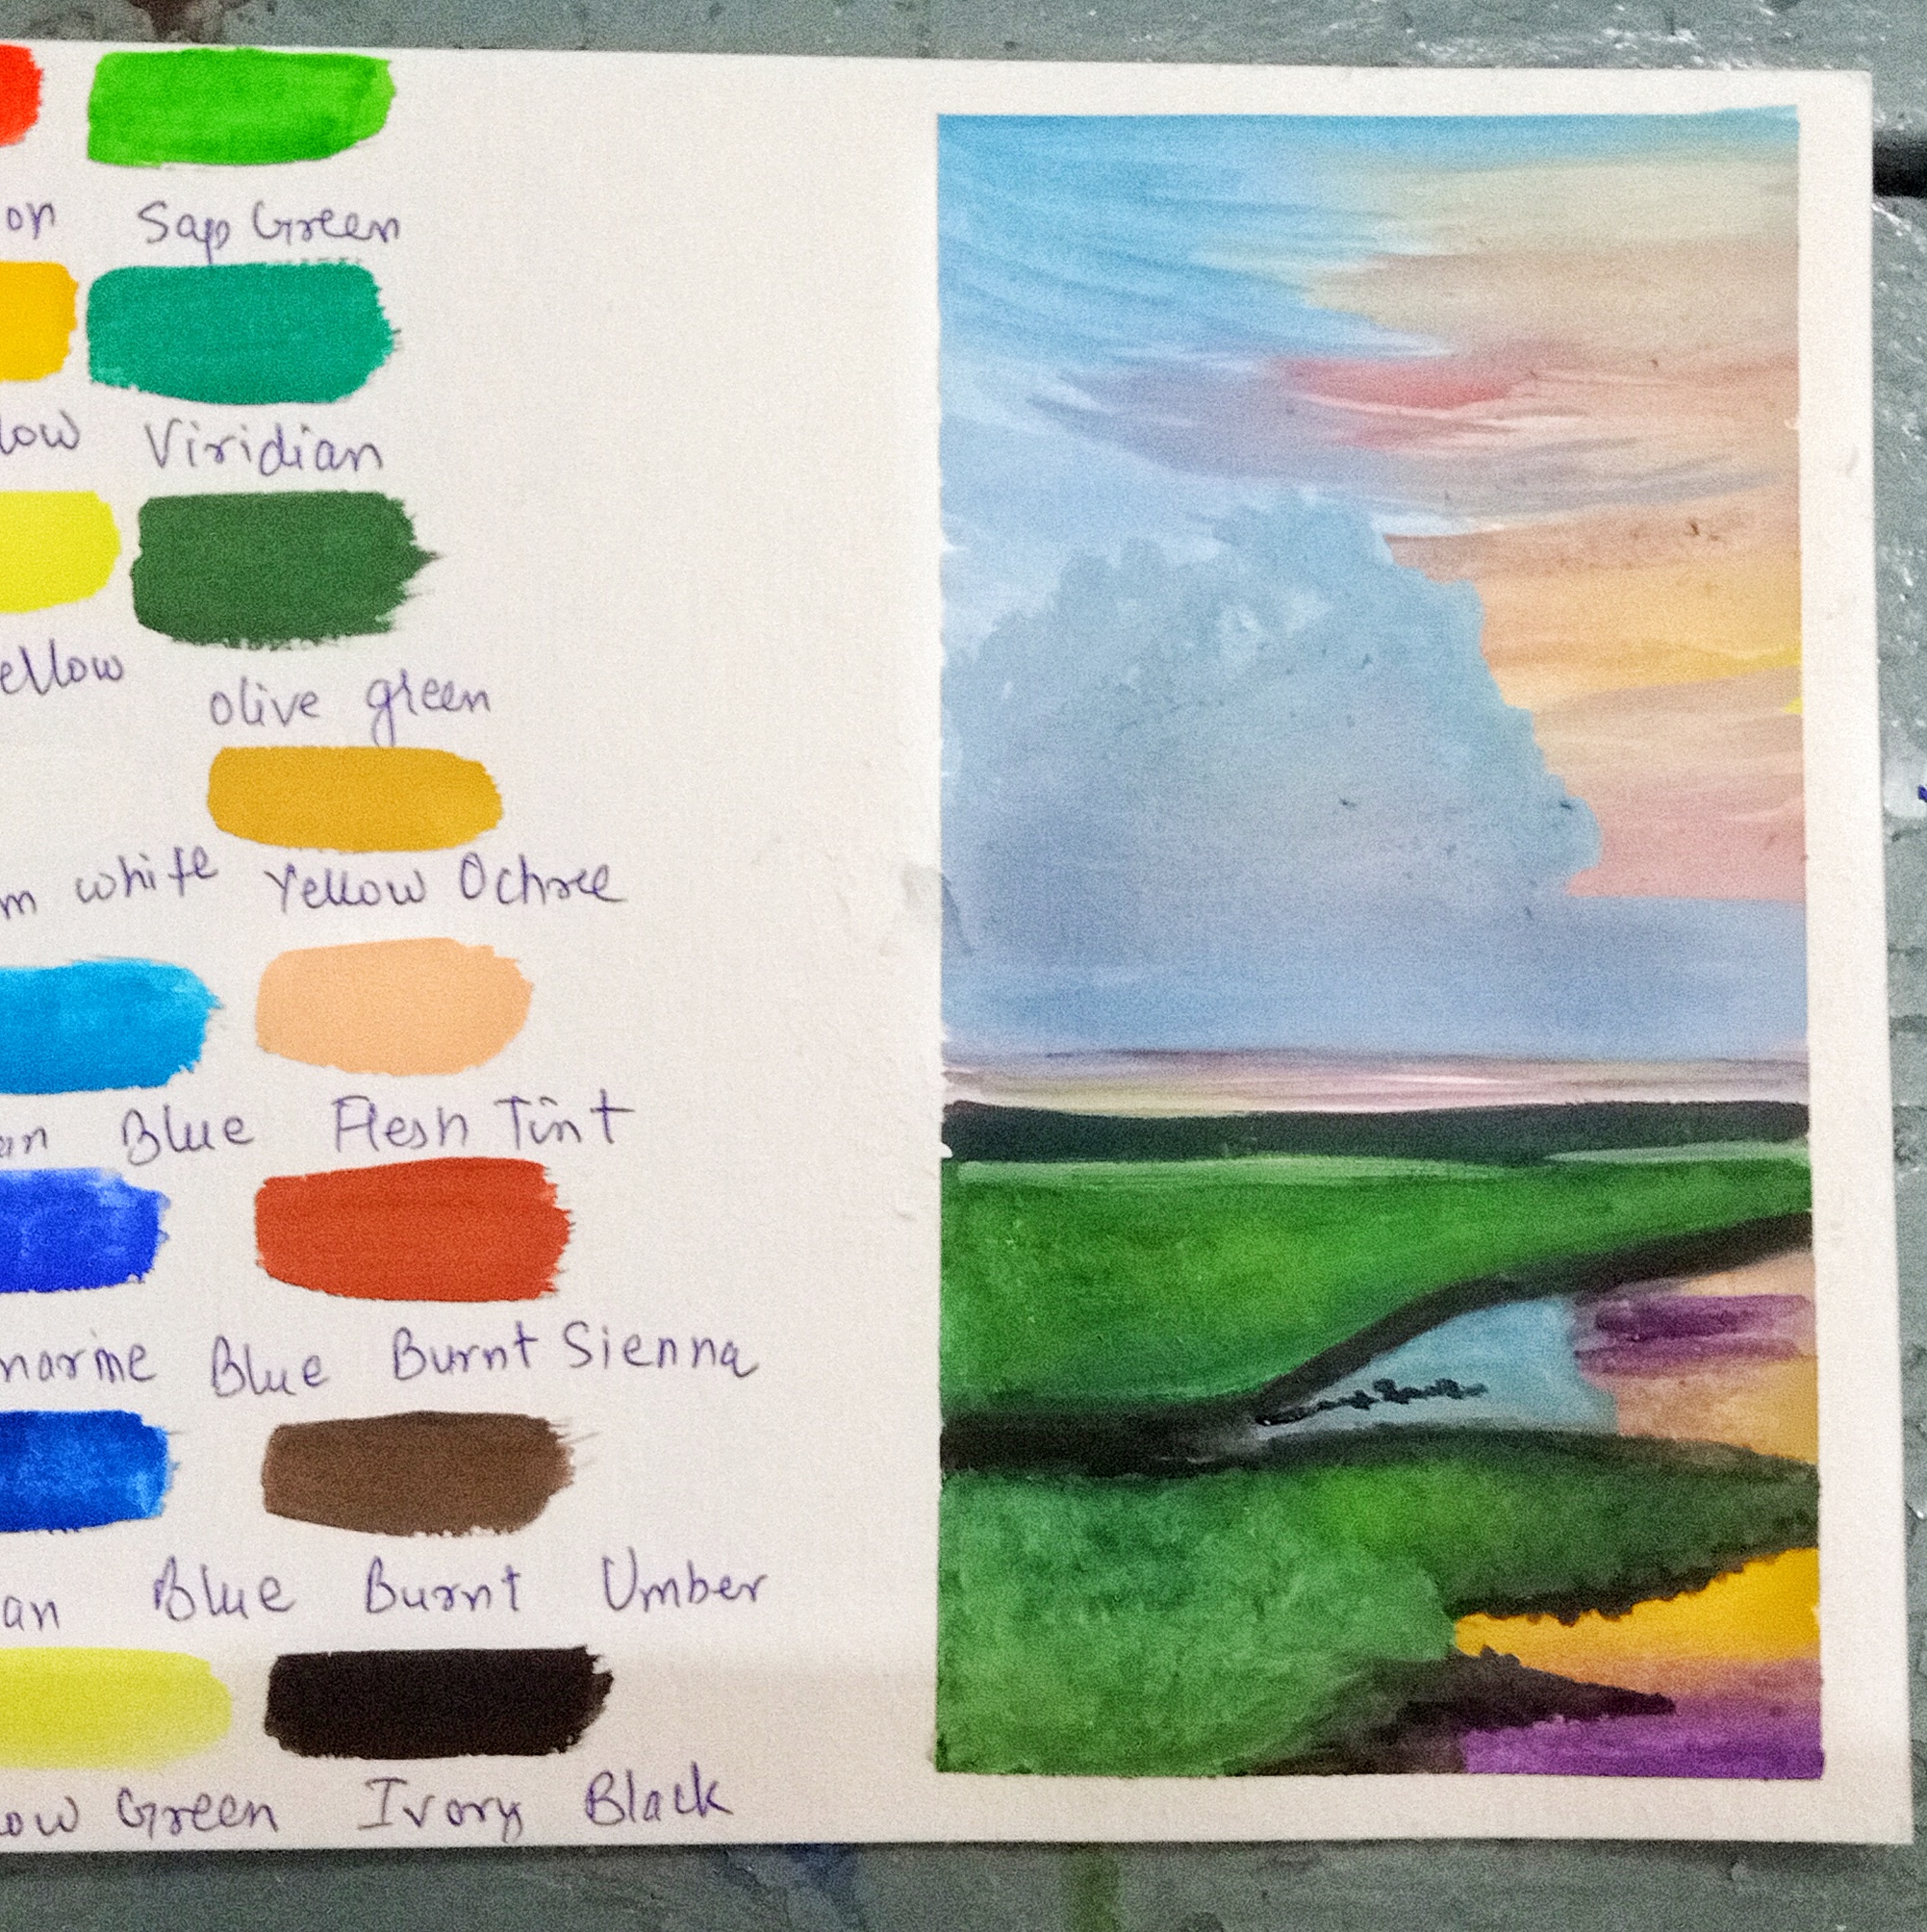 on Sap Green
low Viridian
ellow olive green
m white Yellow Ochre
an Blue Flesh Tint
marine Blue Burnt Sienna
an Blue Burnt Umber
ow Green Ivory Black